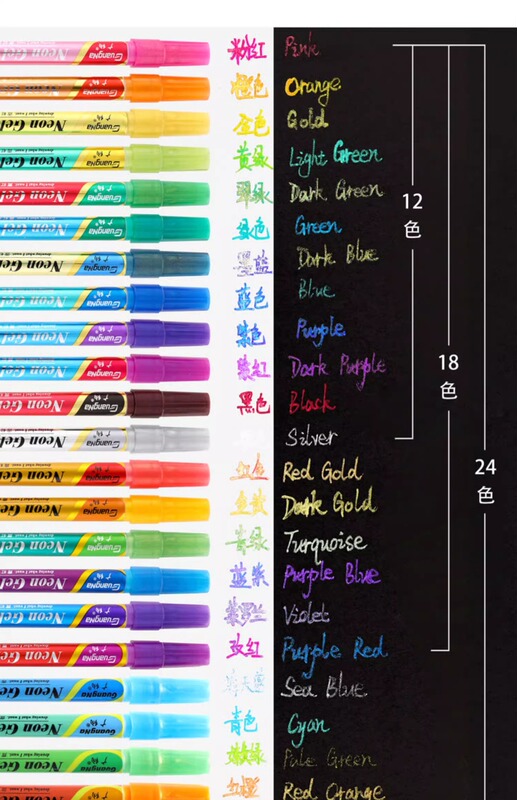 粉红 Pink
橙色 Orange
金色 Gold
黄绿 Light Green
翠绿 Dark Green
绿色 Green
墨蓝 Dark Blue
蓝色 Blue
紫色 Purple
紫红 Dark Purple
黑色 Black
Silver
红金 Red Gold
金黄 Dark Gold
青绿 Turquoise
蓝紫 Purple Blue
紫罗兰 Violet
玫红 Purple Red
海天蓝 Sea Blue
青色 Cyan
嫩绿 Pale Green
Red Orange
12
色
18
色
24
色
GuangNa Neon Gel